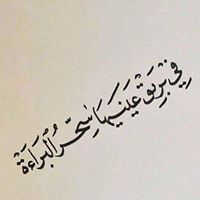 فِي بَرِيقِ عَيْنَيْهَا سِحْرُ الْبَرَاءَةْ